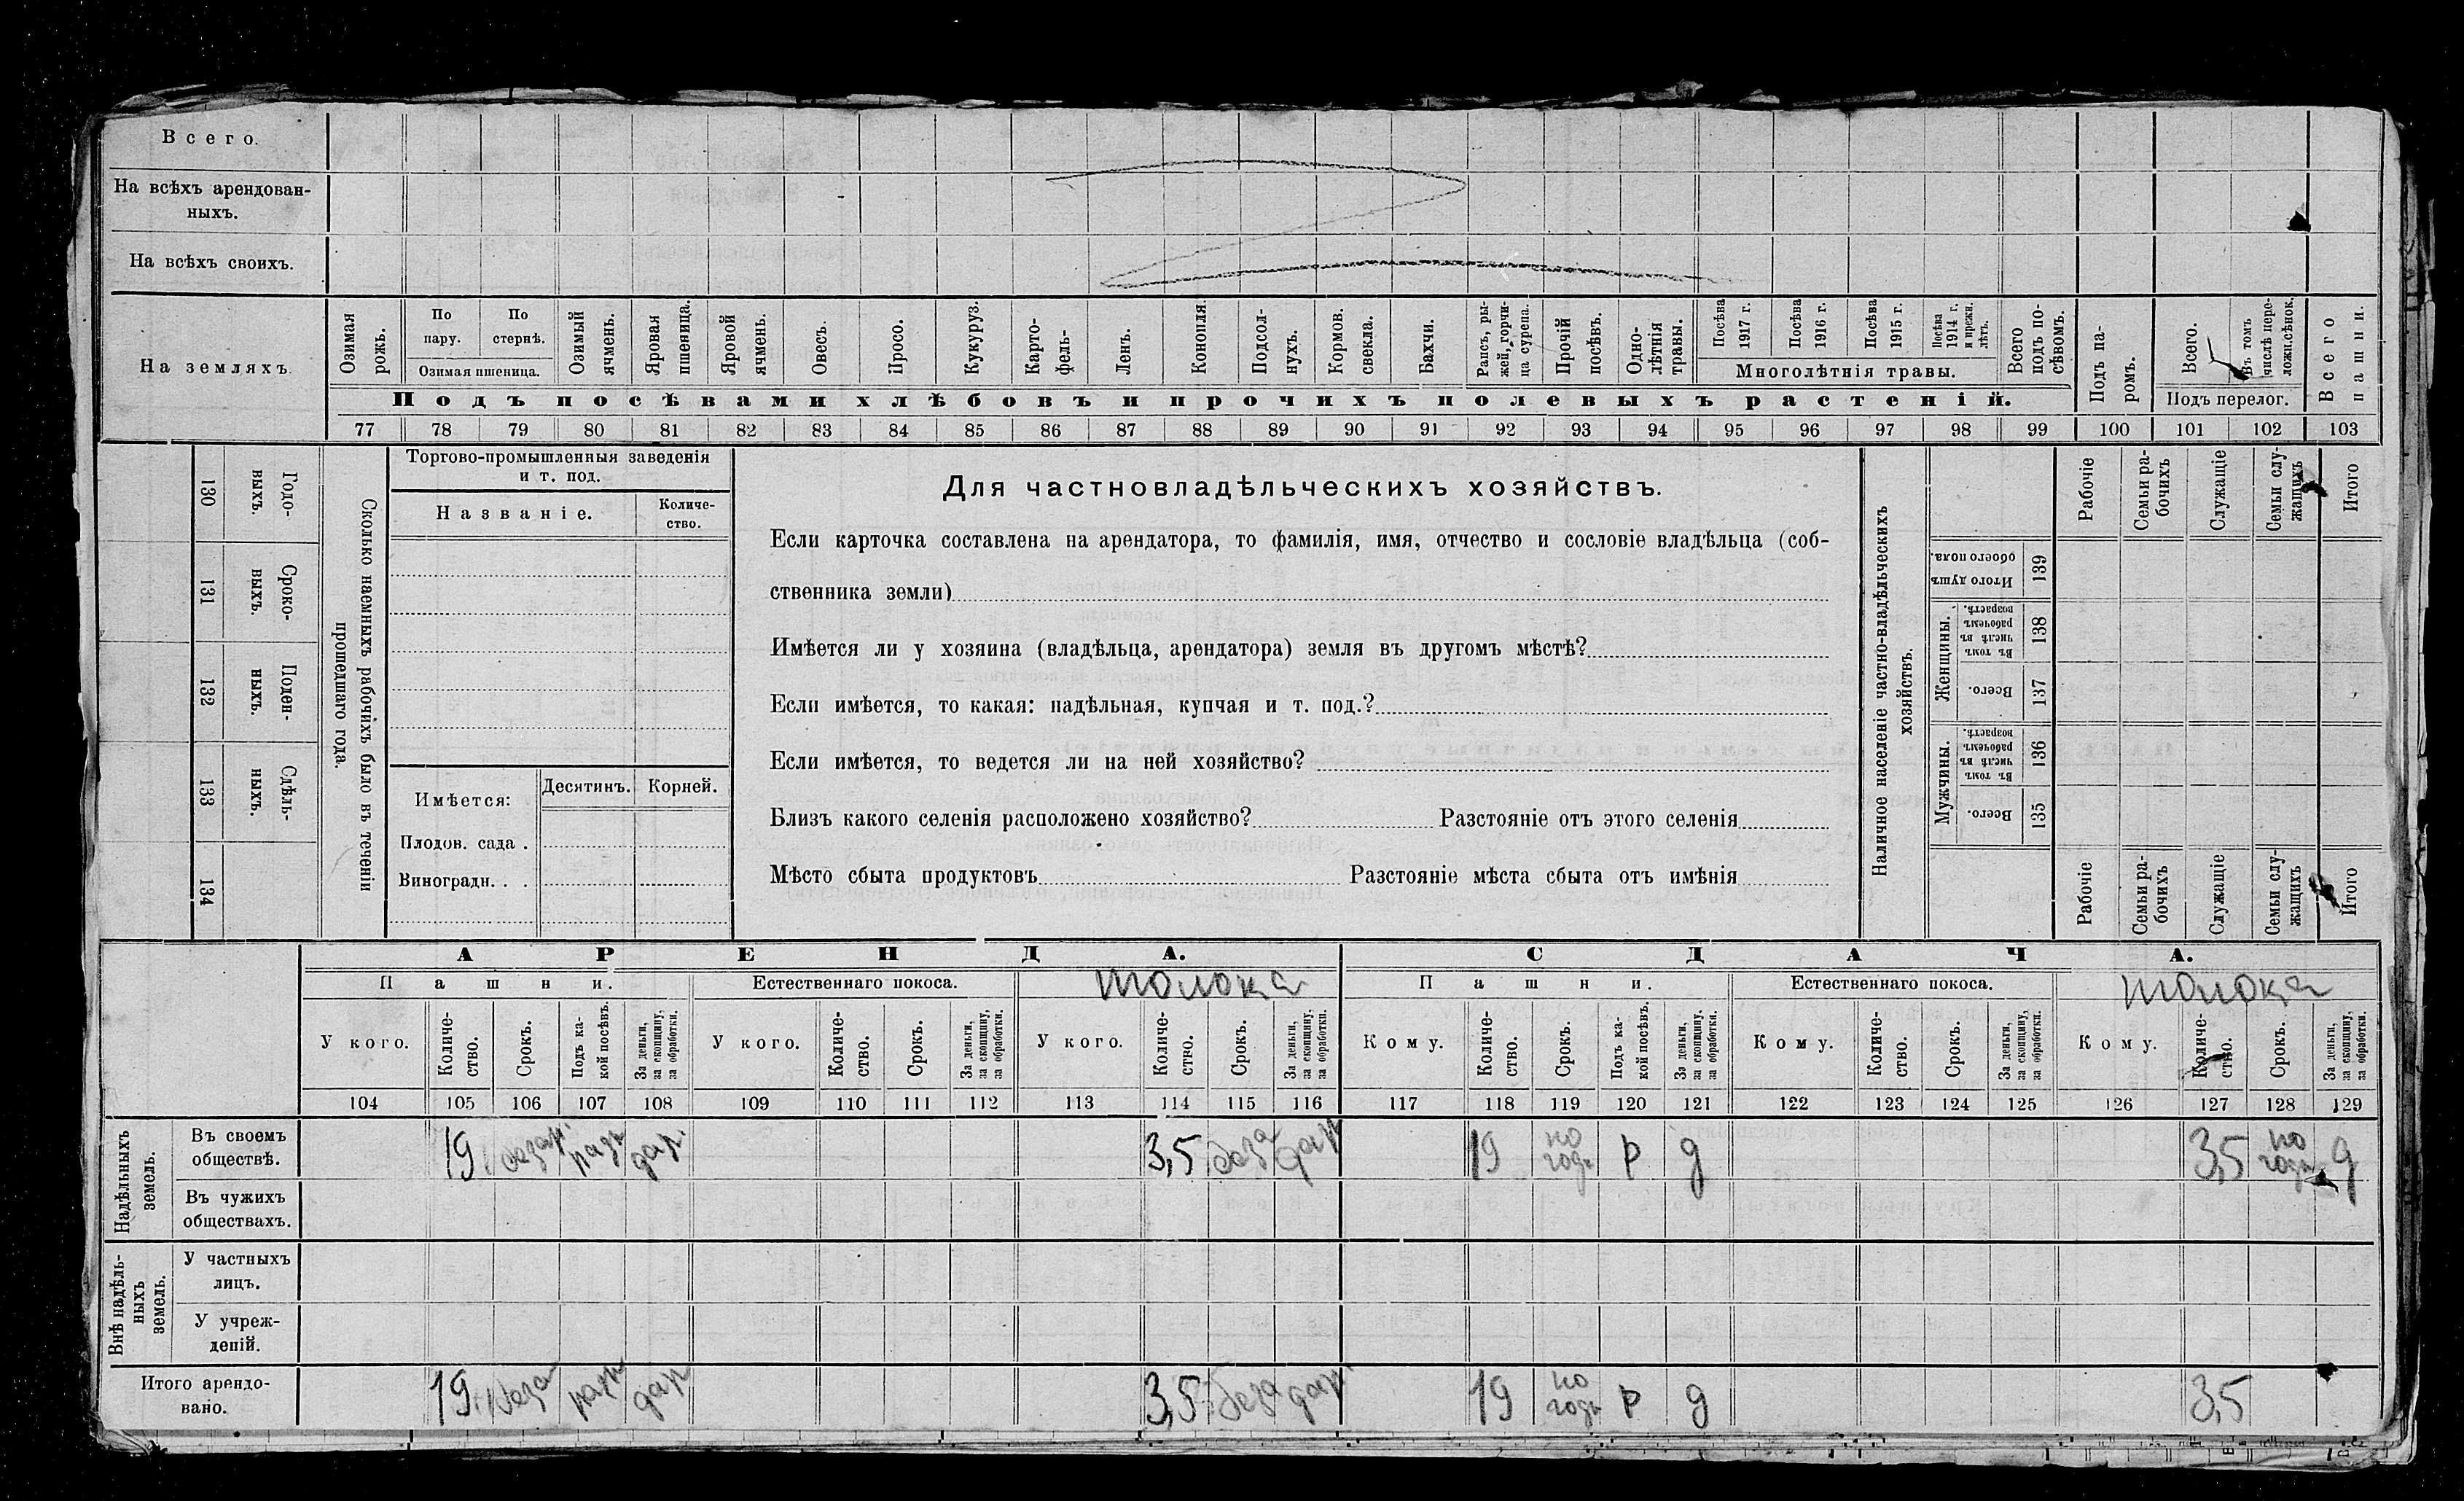 Всего.
На всѣхъ арендован-
ныхъ.
На всѣхъ своихъ.
На земляхъ.
Озимая рожь.
По пару.
По стернѣ.
Озимая пшеница.
Озимый ячмень.
Яровая пшеница.
Яровой ячмень.
Овесъ.
Просо.
Кукуруз.
Карто-
фель-
Ленъ.
Конопля.
Подсол-
нухъ.
Кормов. свекла.
Бахчи.
Рапсъ, ры-
жей, горчи-
ца сурепа.
Прочій посѣвъ.
Одно-
лѣтнія травы.
Посѣва 1917 г.
Посѣва 1916 г.
Посѣва 1915 г.
Посѣва 1914 г. и прежн. лѣтъ.
Многолѣтнія травы.
Всего подъ по-
сѣвомъ.
Подъ па-
ромъ.
Всего.
Въ томъ числѣ пере-
ложн.сѣнок.
Подъ перелог.
Всего пашни.
Подъ посѣвами хлѣбовъ и прочихъ полевыхъ растеній.
77 78 79 80 81 82 83 84 85 86 87 88 89 90 91 92 93 94 95 96 97 98 99 100 101 102 103
130 Годо-
выхъ.
131 Сроко-
выхъ.
132 Поден-
ныхъ.
133 Сдѣль-
ныхъ.
134
Сколько наемныхъ рабочихъ было въ теченіи
прошедшаго года.
Торгово-промышленныя заведенія
и т. под.
Названіе.
Количе-
ство.
Имѣется:
Десятинъ.
Корней.
Плодов. сада .
Виноградн. . .
Для частновладѣльческихъ хозяйствъ.
Если карточка составлена на арендатора, то фамилія, имя, отчество и сословіе владѣльца (соб-
ственника земли)
Имѣется ли у хозяина (владѣльца, арендатора) земля въ другомъ мѣстѣ?
Если имѣется, то какая: надѣльная, купчая и т. под.?
Если имѣется, то ведется ли на ней хозяйство?
Близъ какого селенія расположено хозяйство? Разстояніе отъ этого селенія
Мѣсто сбыта продуктовъ Разстояніе мѣста сбыта отъ имѣнія
Наличное населеніе частно-владѣльческихъ
хозяйствъ.
Рабочіе
Семьи ра-
бочихъ
Служащіе
Семьи слу-
жащихъ
Итого
Итого душ обоего пола.
139
Женщины.
Въ томъ числѣ въ рабочемъ возрастѣ.
138
Всего.
137
Мужчины.
Въ томъ числѣ въ рабочемъ возрастѣ.
136
Всего.
135
Рабочіе
Семьи ра-
бочихъ
Служащіе
Семьи слу-
жащихъ
Итого
АРЕНДА. СДАЧА.
Пашни. Естественнаго покоса. толока Пашни. Естественнаго покоса. толока
У кого.
Количе-
ство.
Срокъ.
Подъ ка-
кой посѣвъ.
За деньги, за скопщину, за обработки.
У кого.
Количе-
ство.
Срокъ.
За деньги, за скопщину, за обработки.
У кого.
Количе-
ство.
Срокъ.
За деньги, за скопщину, за обработки.
Кому.
Количе-
ство.
Срокъ.
Подъ ка-
кой посѣвъ.
За деньги, за скопщину, за обработки.
Кому.
Количе-
ство.
Срокъ.
За деньги, за скопщину, за обработки.
Кому.
Количе-
ство.
Срокъ.
За деньги, за скопщину, за обработки.
104 105 106 107 108 109 110 111 112 113 114 115 116 117 118 119 120 121 122 123 124 125 126 127 128 129
Надѣльныхъ земель.
Въ своемъ
обществѣ.
19 дар. 3,5 дар 19 по годъ р д 3,5 по годъ д
Въ чужихъ
обществахъ.
Внѣ надѣль-
ныхъ земель.
У частныхъ
лицъ.
У учреж-
деній.
Итого арендо-
вано.
19 дар 3,5 дар 19 по годъ р д 3,5